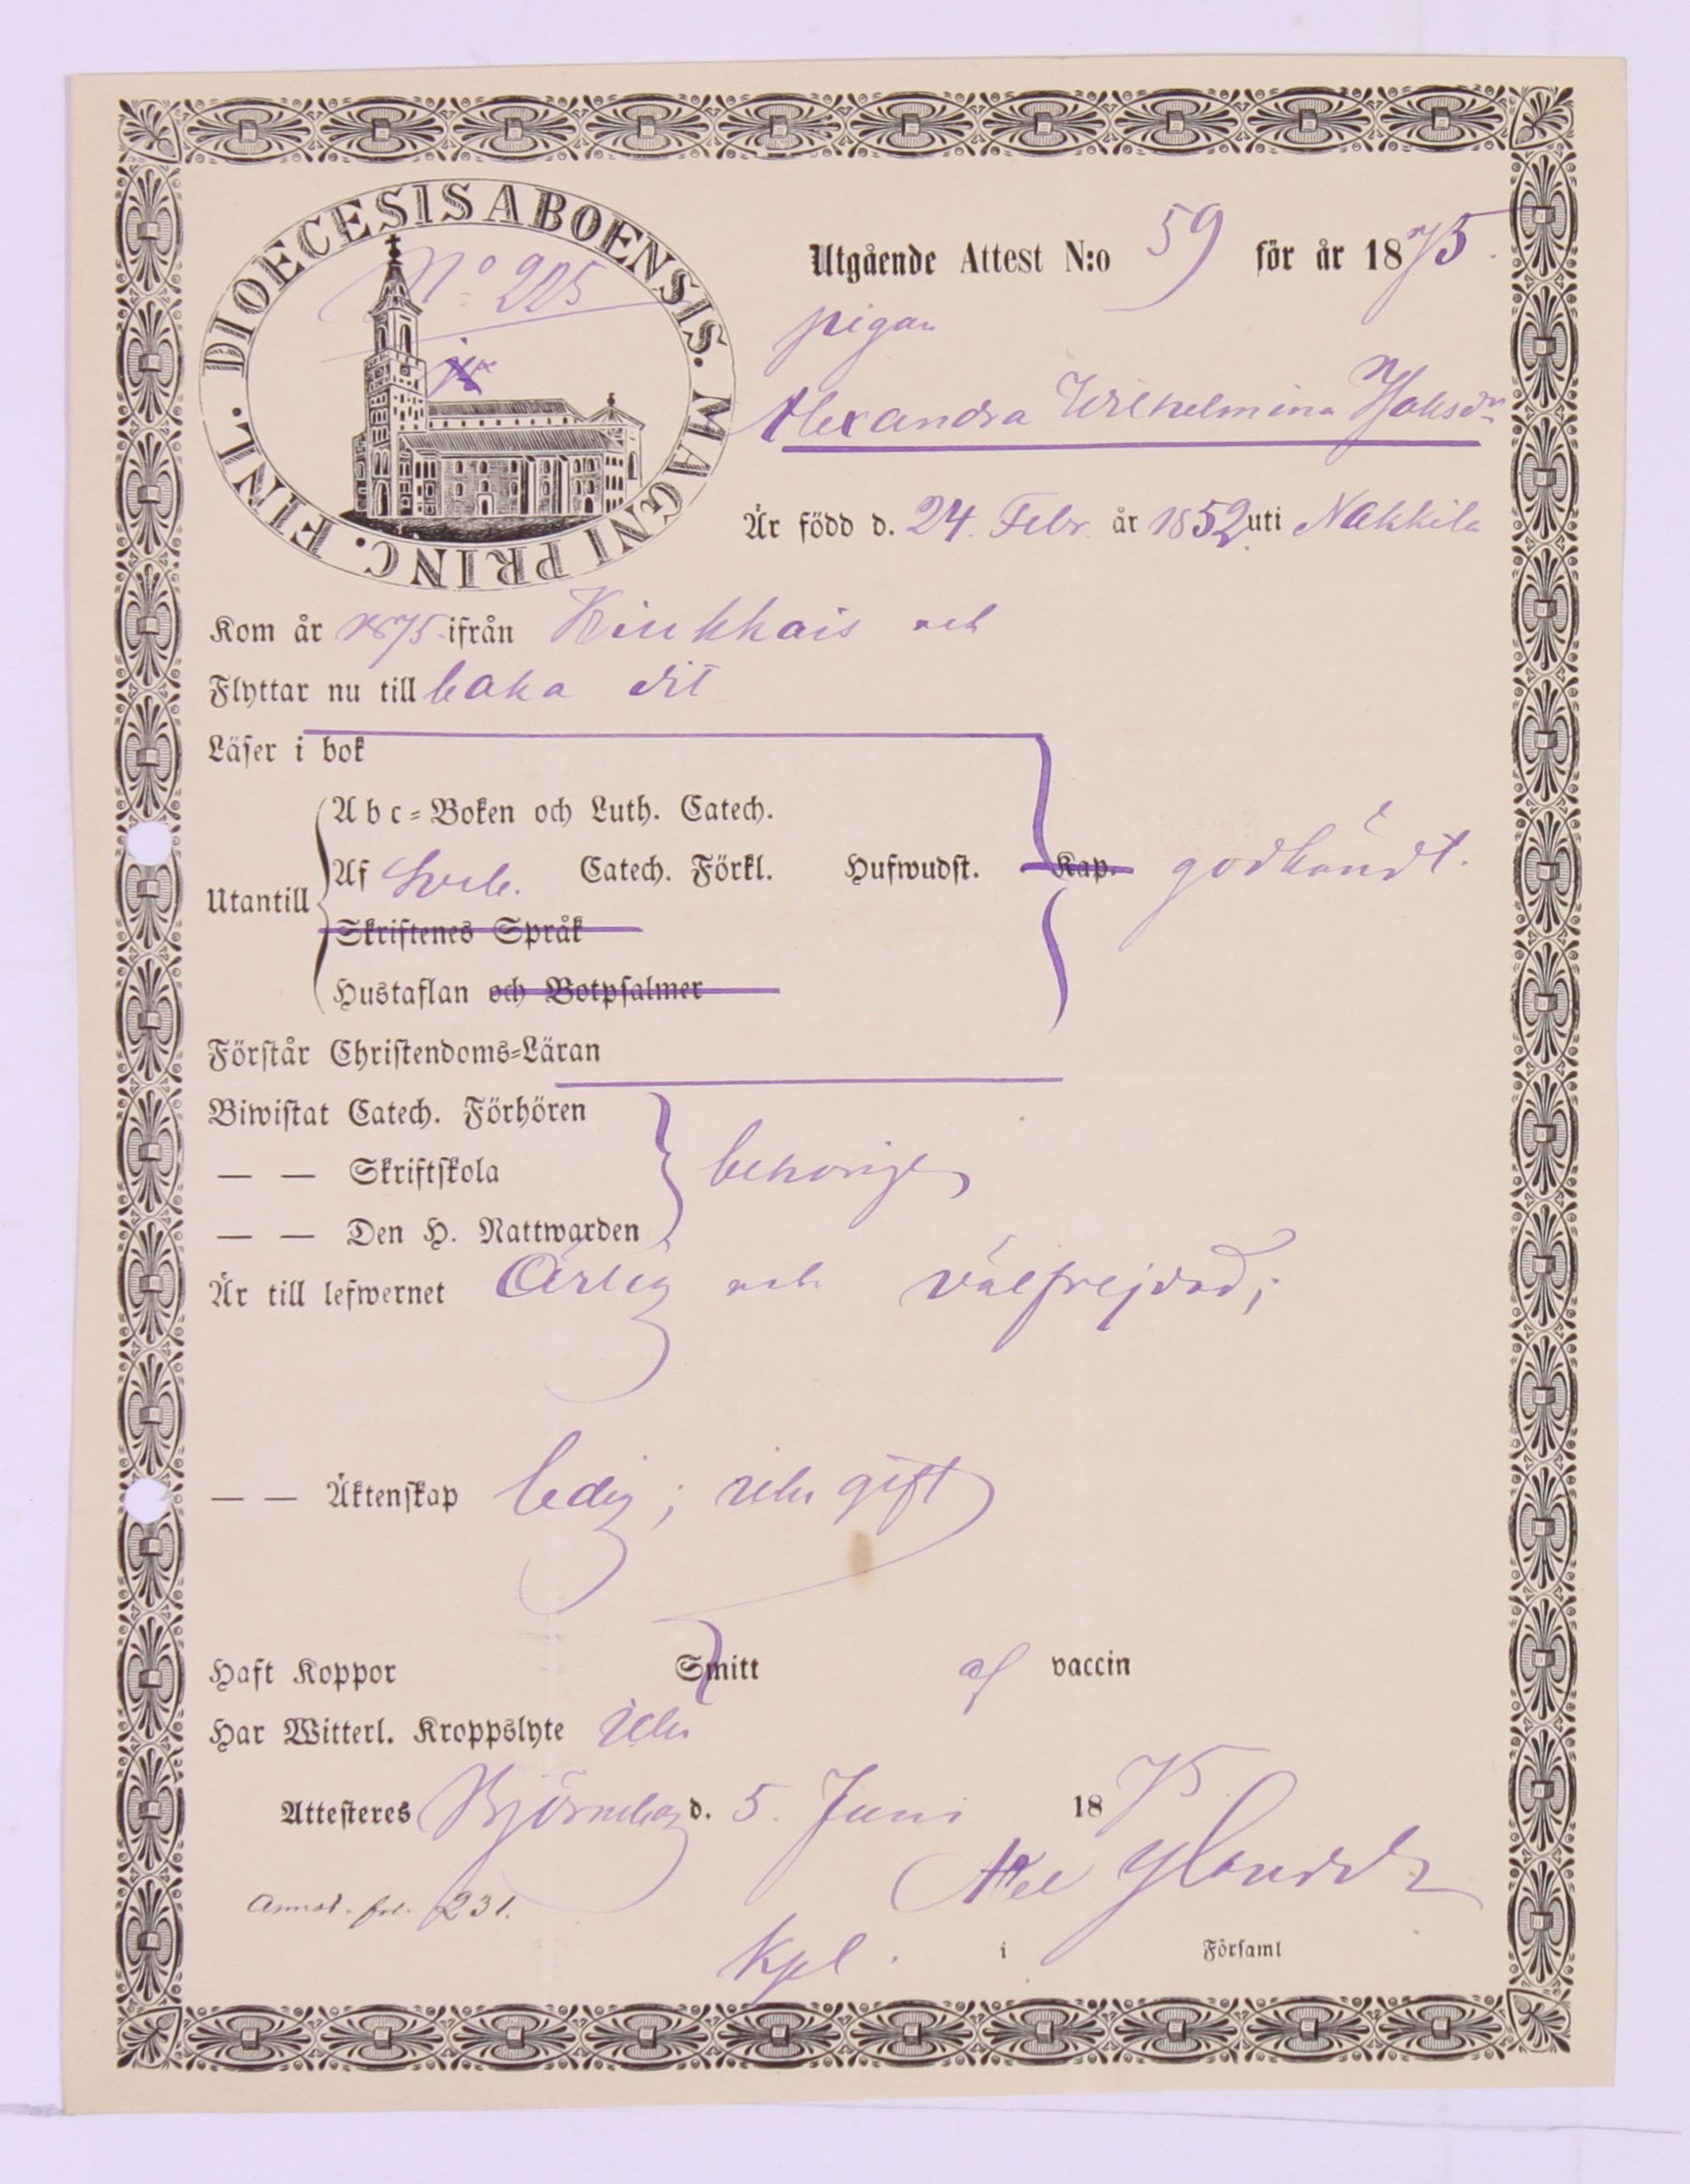 DIOECESIS ABOENSIS. MAGNI PRINC. FINL.
N:o 925
Utgående Attest N:o 59 för år 1875.
pigan
Alexandra Wilhelmina
Är född d. 24. Febr. år 1852 uti Nakkila
Kom år 1875 ifrån Kiukkais och
Flyttar nu till baka dit
Läser i bok
Abc-Boken och Luth. Catech.
Utantill Af Sveb. Catech. Förkl. Hufwudst. Kap. godkändt.
Skriftenes Språk
Hustaflan och Botpsalmer
Förstår Christendoms-Läran
Biwistat Catech. Förhören
— — Skriftskola behörigen
— — Den H. Nattwarden
Är till lefwernet Ärlig och välfrejdad;
— — Äktenskap ledig; icke gift
Haft Koppor Smitt af vaccin
Har Witterl. Kroppslyte icke
Attesteres Björneborg d. 5. Juni 1875.
Annot. fol. 231.
Kpl. i Församl